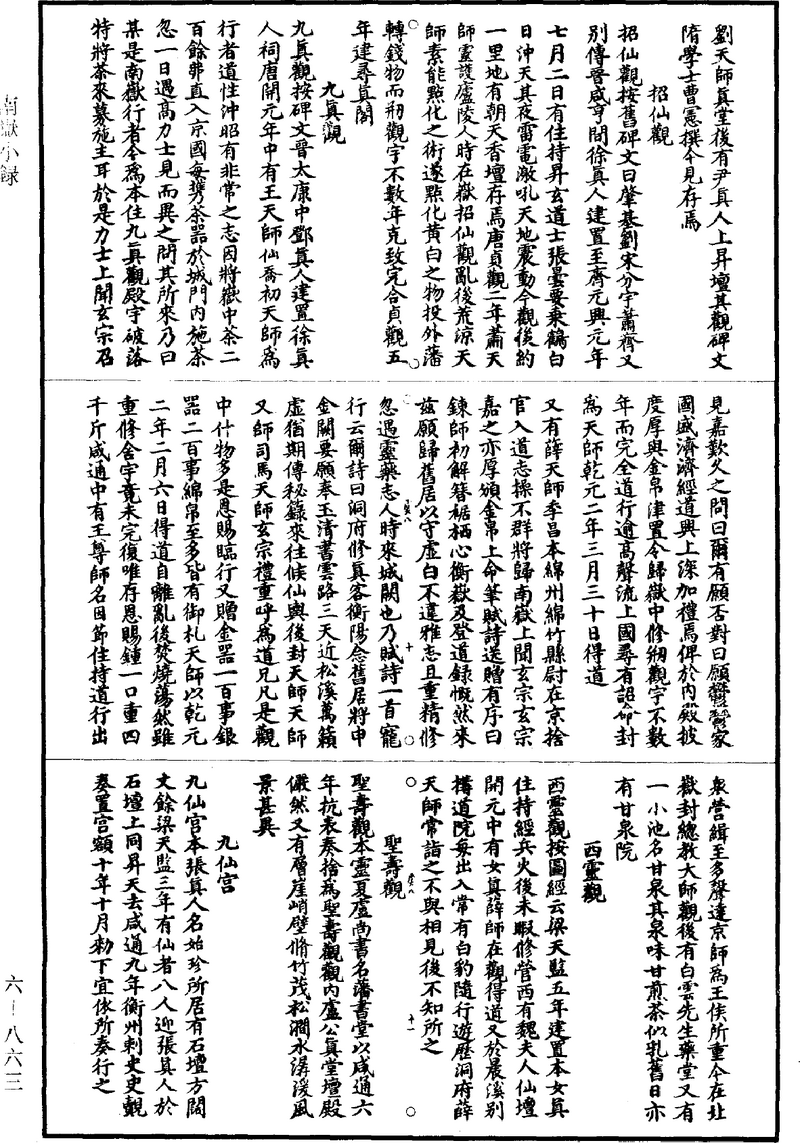 劉天師眞堂後有尹眞人上昇壇其觀碑文
隋學士曹憲撰今見存焉
招仙觀
招仙觀按舊碑文曰肇基劉宋分宇蕭齊又
別傳晉咸亨間徐眞人建置至齊元興元年
七月二日有住持昇玄道士張曇要乘鶴白
日沖天其夜雷電激吼天地震動今觀後約
一里地有朝天香壇存焉唐貞觀二年蕭天
師靈護廬陵人時在嶽招仙觀亂後荒涼天
師素能點化之術遂點化黃白之物投外藩
轉錢物而剏觀宇不數年克致完合貞觀五
年建尋眞閣
九眞觀
九眞觀按碑文晉太康中鄧眞人建置徐眞
人祠唐開元年中有王天師仙喬初天師爲
行者道性沖昭有非常之志因將嶽中茶二
百餘串直入京國每攜茶器於城門內施茶
忽一日遇高力士見而異之問其所來乃曰
某是南嶽行者今爲本住九眞觀殿宇破落
特將茶來募施主耳於是力士上聞玄宗召
見嘉歎久之問曰爾有願否對曰願鬱鬱家
國盛濟濟經道興上深加禮焉俾於內殿披
度厚與金帛津置令歸嶽中修剏觀宇不數
年而完全道行逾高聲流上國尋有詔命封
爲天師乾元二年三月三十日得道
又有薛天師季昌本綿州綿竹縣尉在京捨
官入道志操不群將歸南嶽上聞玄宗玄宗
嘉之亦厚頒金帛上命筆賦詩送贈有序曰
鍊師初解簪裾栖心衡嶽及登道錄慨然來
茲願歸舊居以守虛白不違雅志且重精修
忽遇靈藥志人時來城闕也乃賦詩一首寵
行云爾詩曰洞府修眞客衡陽念舊居將申
金闕要願奉玉清書雲路三天近松溪萬籟
虛猶期傳秘籙來往候仙輿後封天師天師
又師司馬天師玄宗禮重呼爲道兄凡是觀
中什物多是恩賜臨行又贈金器一百事銀
器二百事綿帛至多皆有御札天師以乾元
二年二月六日得道自離亂後焚燒蕩然雖
重修舍宇竟未完復唯存恩賜鍾一口重四
千斤咸通中有王尊師名固節住持道行出
衆營緝至多聲達京師爲王侯所重今在北
嶽封總教大師觀後有白雲先生藥堂又有
一小池名甘泉其泉味甘煎茶似乳舊日亦
有甘泉院
西靈觀
西靈觀按圖經云梁天監五年建置本女眞
住持經兵火後未暇修營西有魏夫人仙壇
開元中有女眞薛師在觀得道又於晨溪別
構道院每出入常有白豹隨行遊歷洞府薛
天師常詣之不與相見後不知所之
聖壽觀
聖壽觀本靈夏盧尚書名藩書堂以咸通六
年抗表奏捨爲聖壽觀觀內盧公眞堂壇殿
儼然又有層崖峭壁脩竹茂松澗水潺湲風
景甚異
九仙宮
九仙宮本張眞人名始珍所居有石壇方闊
丈餘梁天監三年有仙者八人迎張眞人於
石壇上同昇天去咸通九年衡州刺史史覿
奏置宮額十年十月勑下宜依所奏行之
南嶽小錄
六－八六三